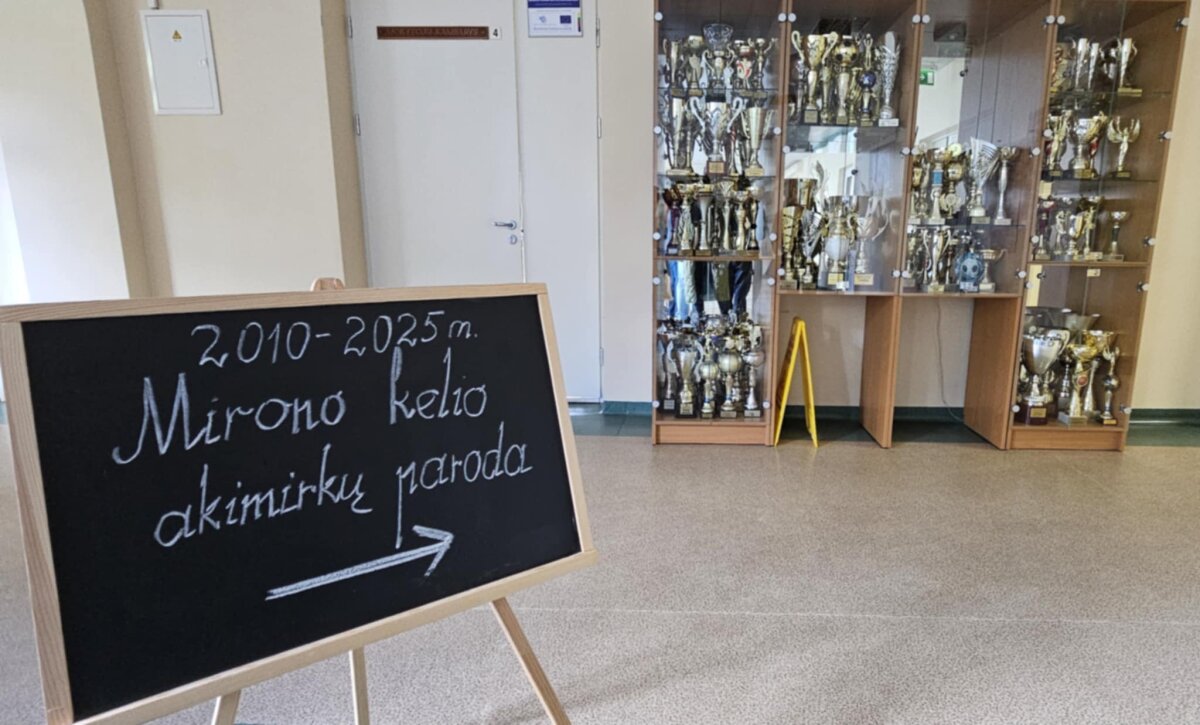 4
2010-2025 m.
Mirono kelio
akimirkų paroda